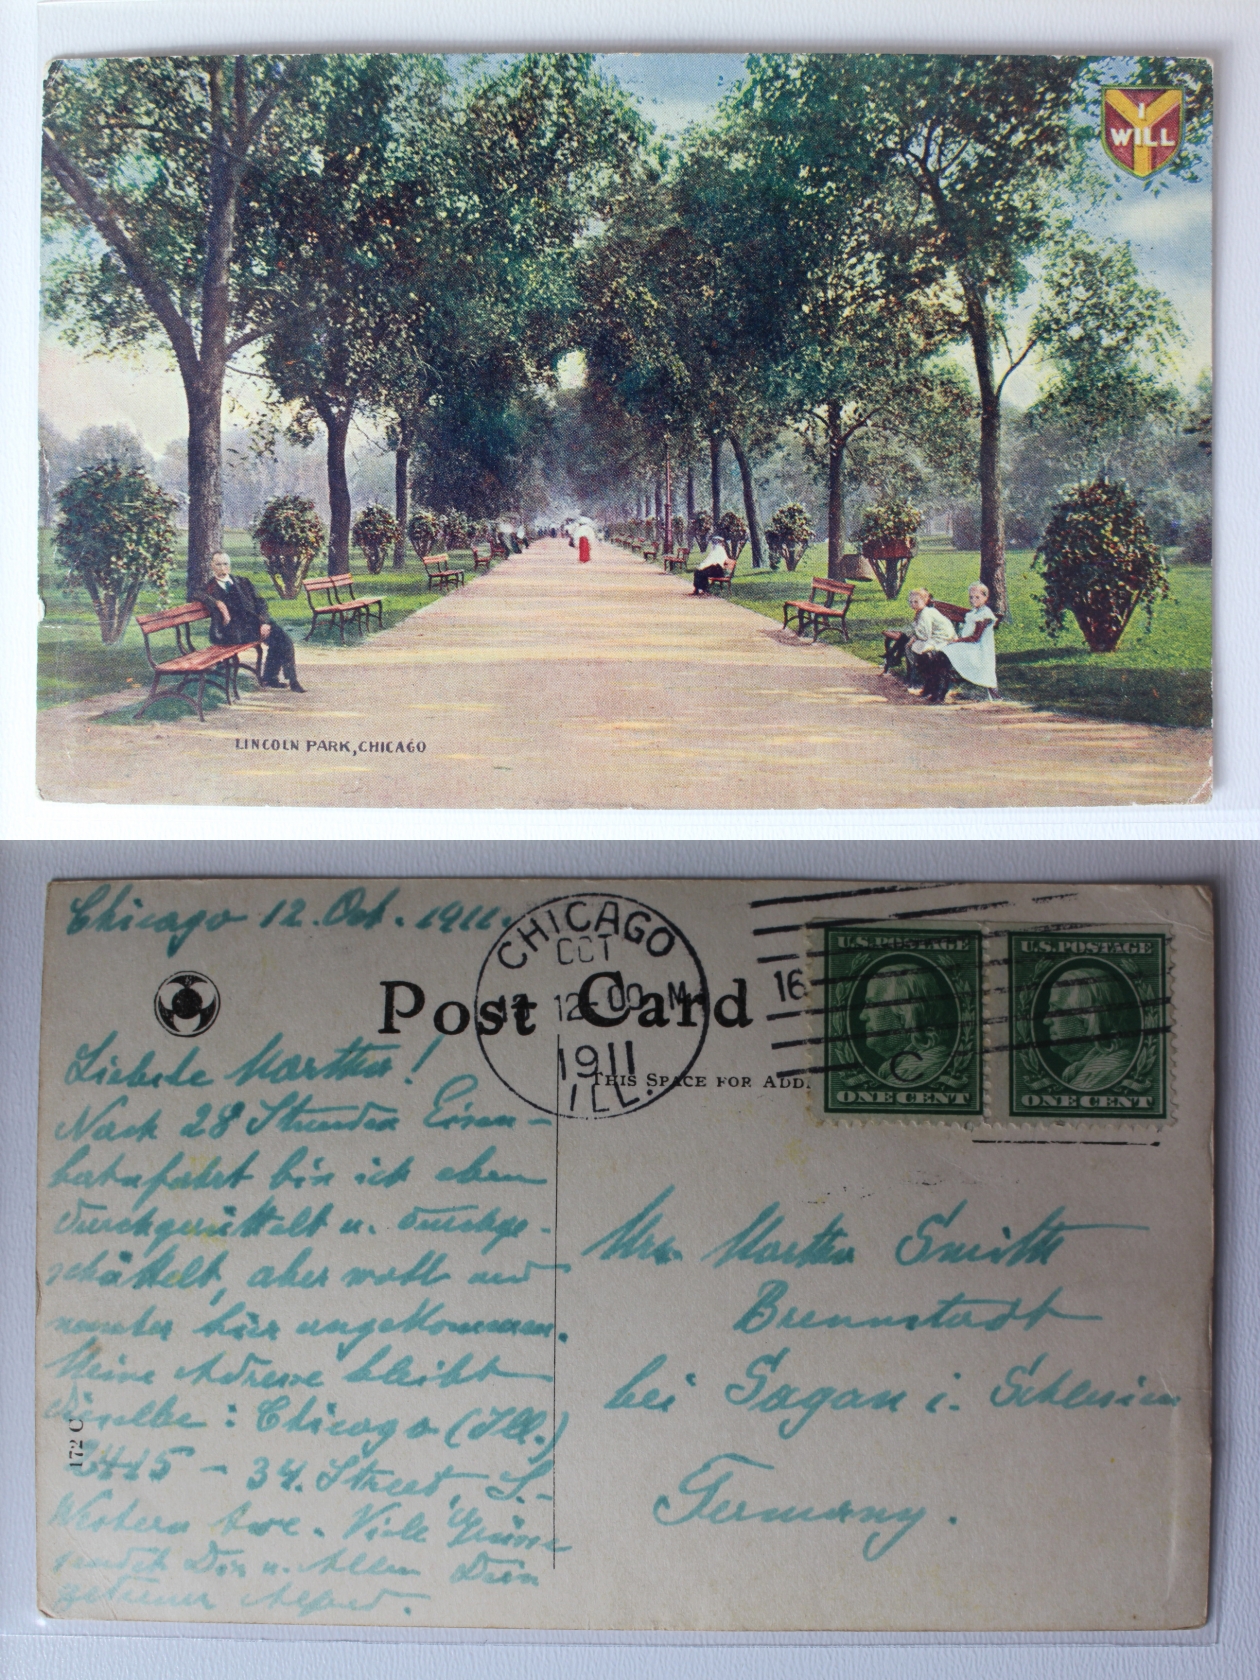 I
WILL
LINCOLN PARK, CHICAGO
Chicago 12. Oct. 1911.
CHICAGO
OCT
12 12-00 M
1911
ILL.
16
C
U.S. POSTAGE
ONE CENT
U.S. POSTAGE
ONE CENT
Post Card
THIS SPACE FOR ADD.
Liebste Martha!
Nach 28 Stunden Eisen-
bahnfahrt bin ich eben
durchgerüttelt u. durchge-
schüttelt, aber wohl und
munter hier angekommen.
Meine Adresse bleibt
dieselbe: Chicago (Ill.)
2445 - 34. Street, S.-
Western Ave. Viele Grüsse
sendet Dir u. Allen Dein
getreuer Alfred.
172 C
Mrs. Martha Smith
Brennstadt
bei Sagan i. Schlesien
Germany.